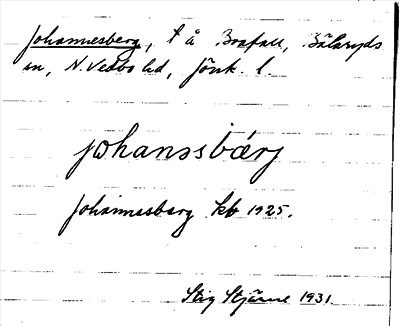 Johannesberg, t å Boafall, Bälaryds
sn, N. Vedbo hd, Jönk. l.
johanssbærj
Johannesberg kb 1925.
Stig Stjärne 1931.